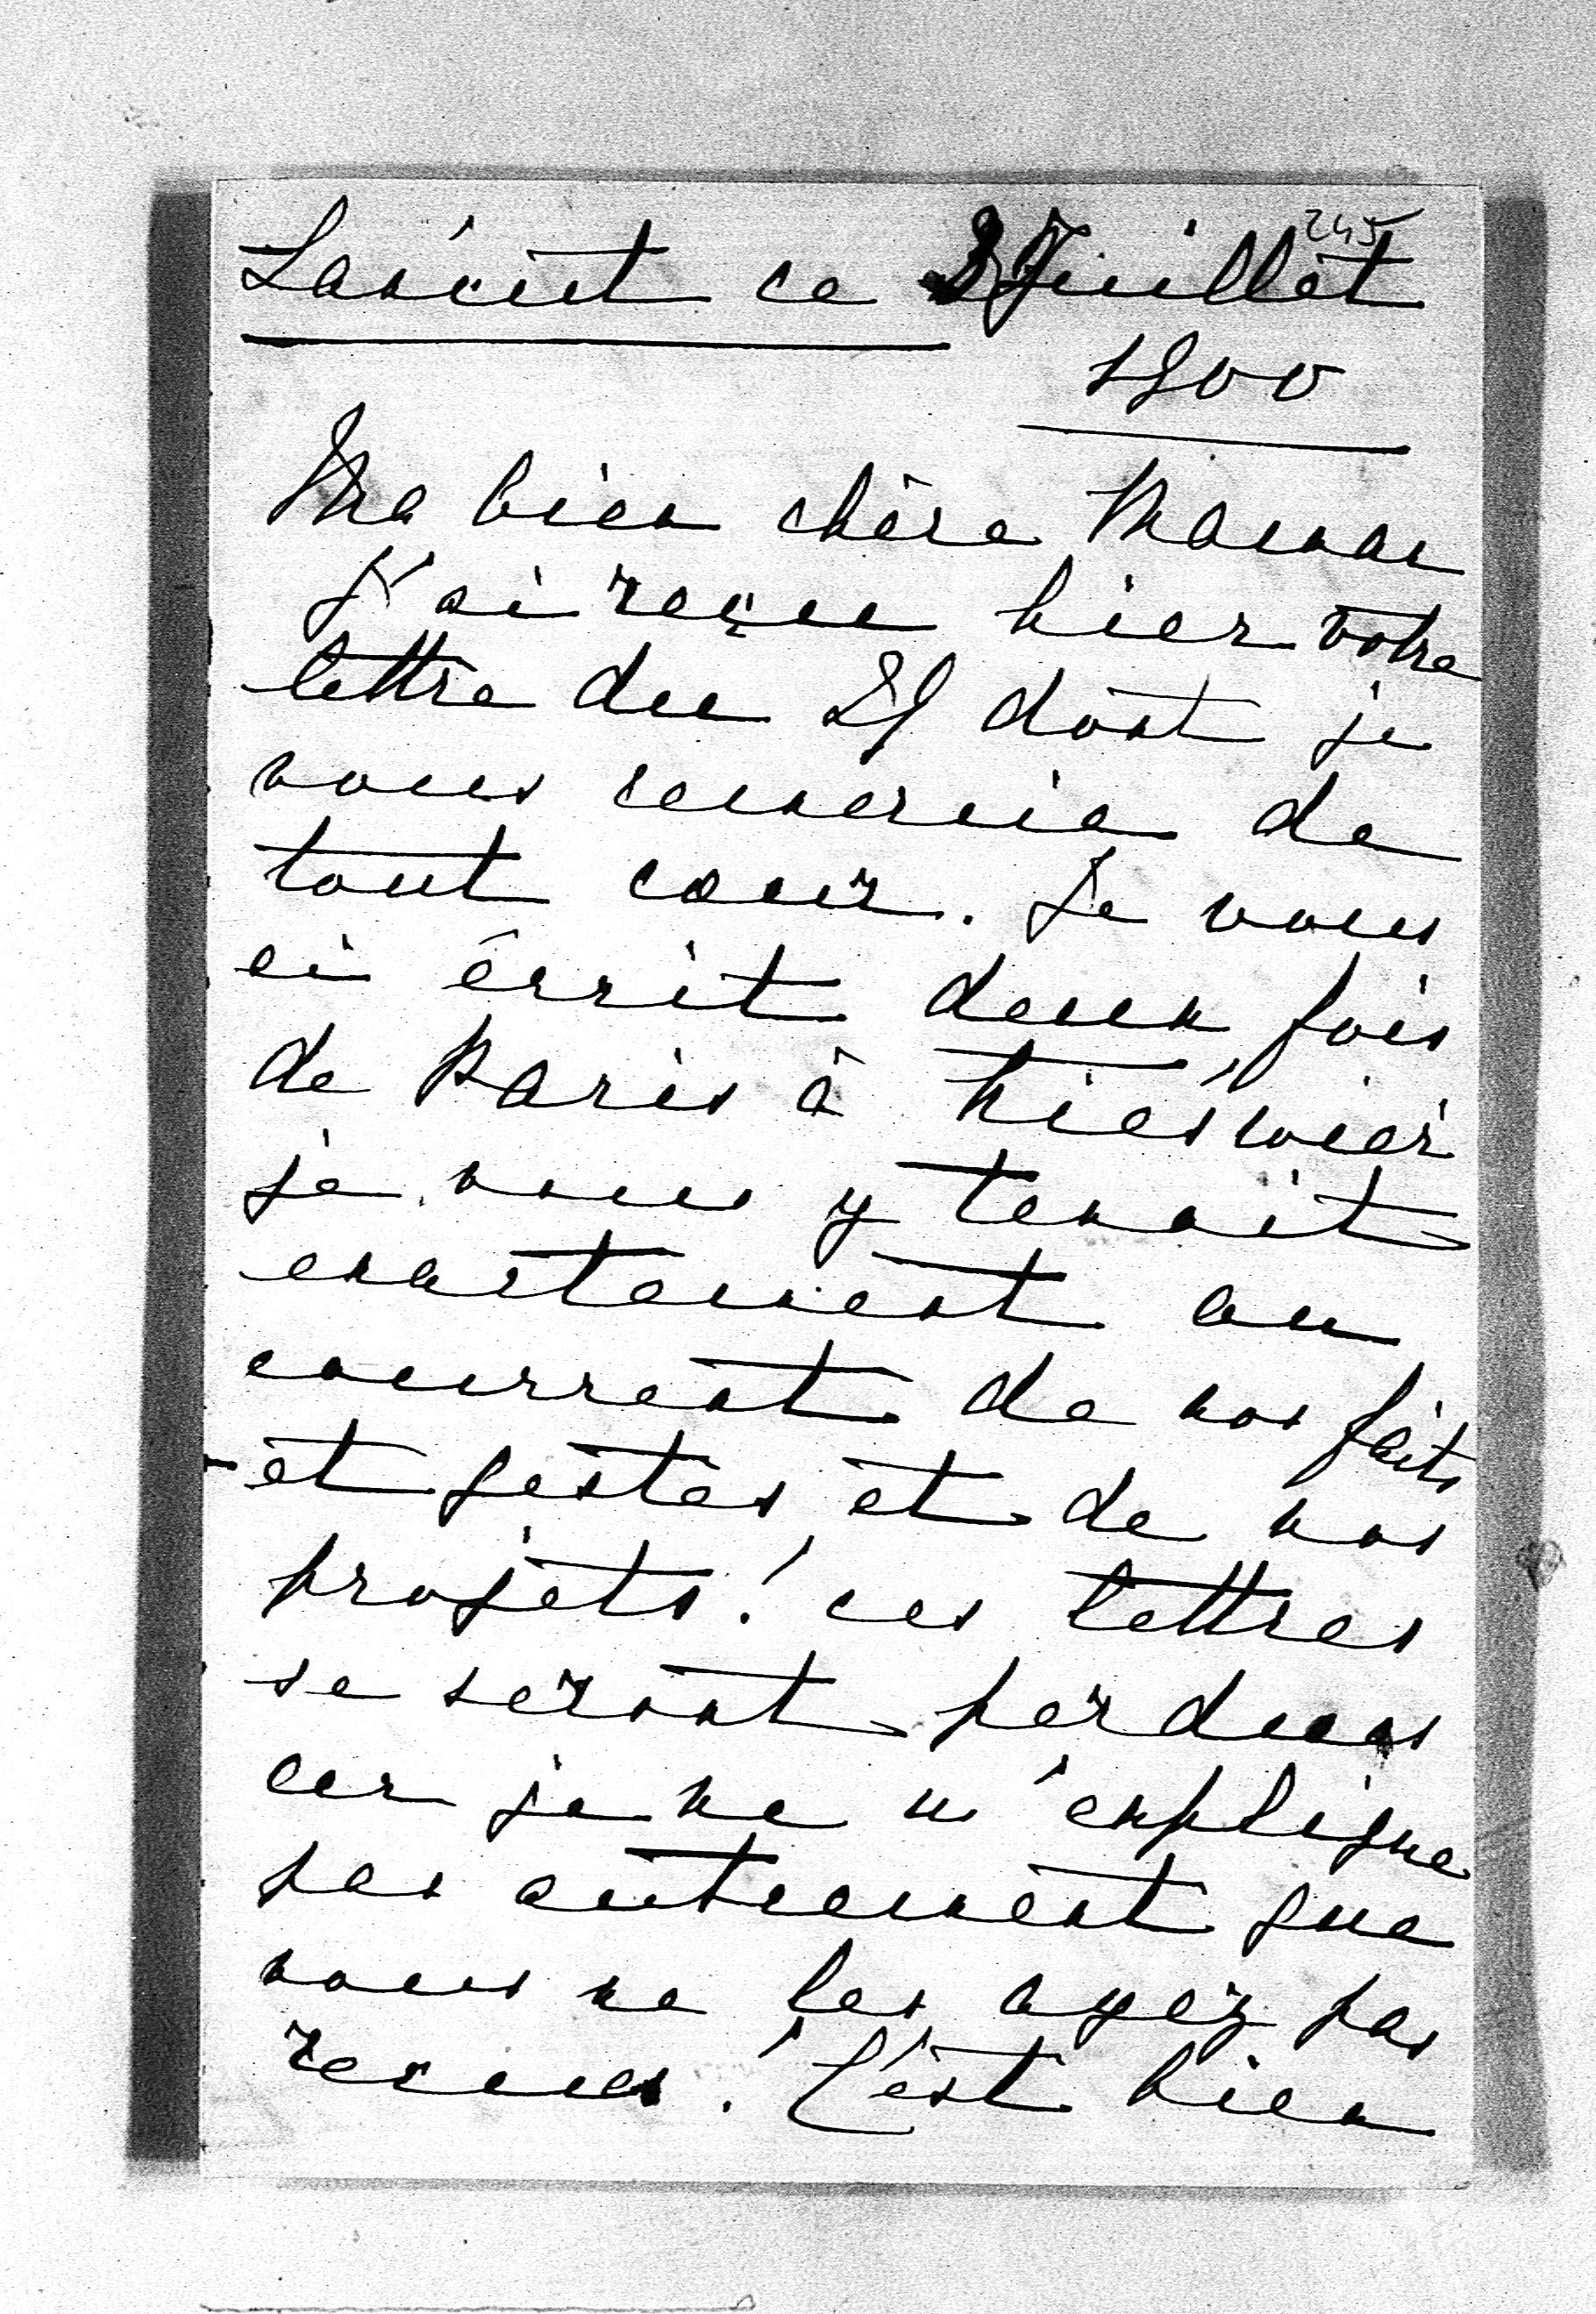 245
Łańcut ce 3 Juillet
1900
Ma bien chère Maman
J'ai reçue hier votre
lettre du 29 dont je
vous remercie de
tout cœur. Je vous
ai écrit deux fois
de Paris à
je vous y tenait
exactement au
courrent de nos faits
et gestes, et de nos
projets! ces lettres
se seront perdues
car je ne m'explique
pas autrement que
vous ne les ayez pas
recues! C'est bien